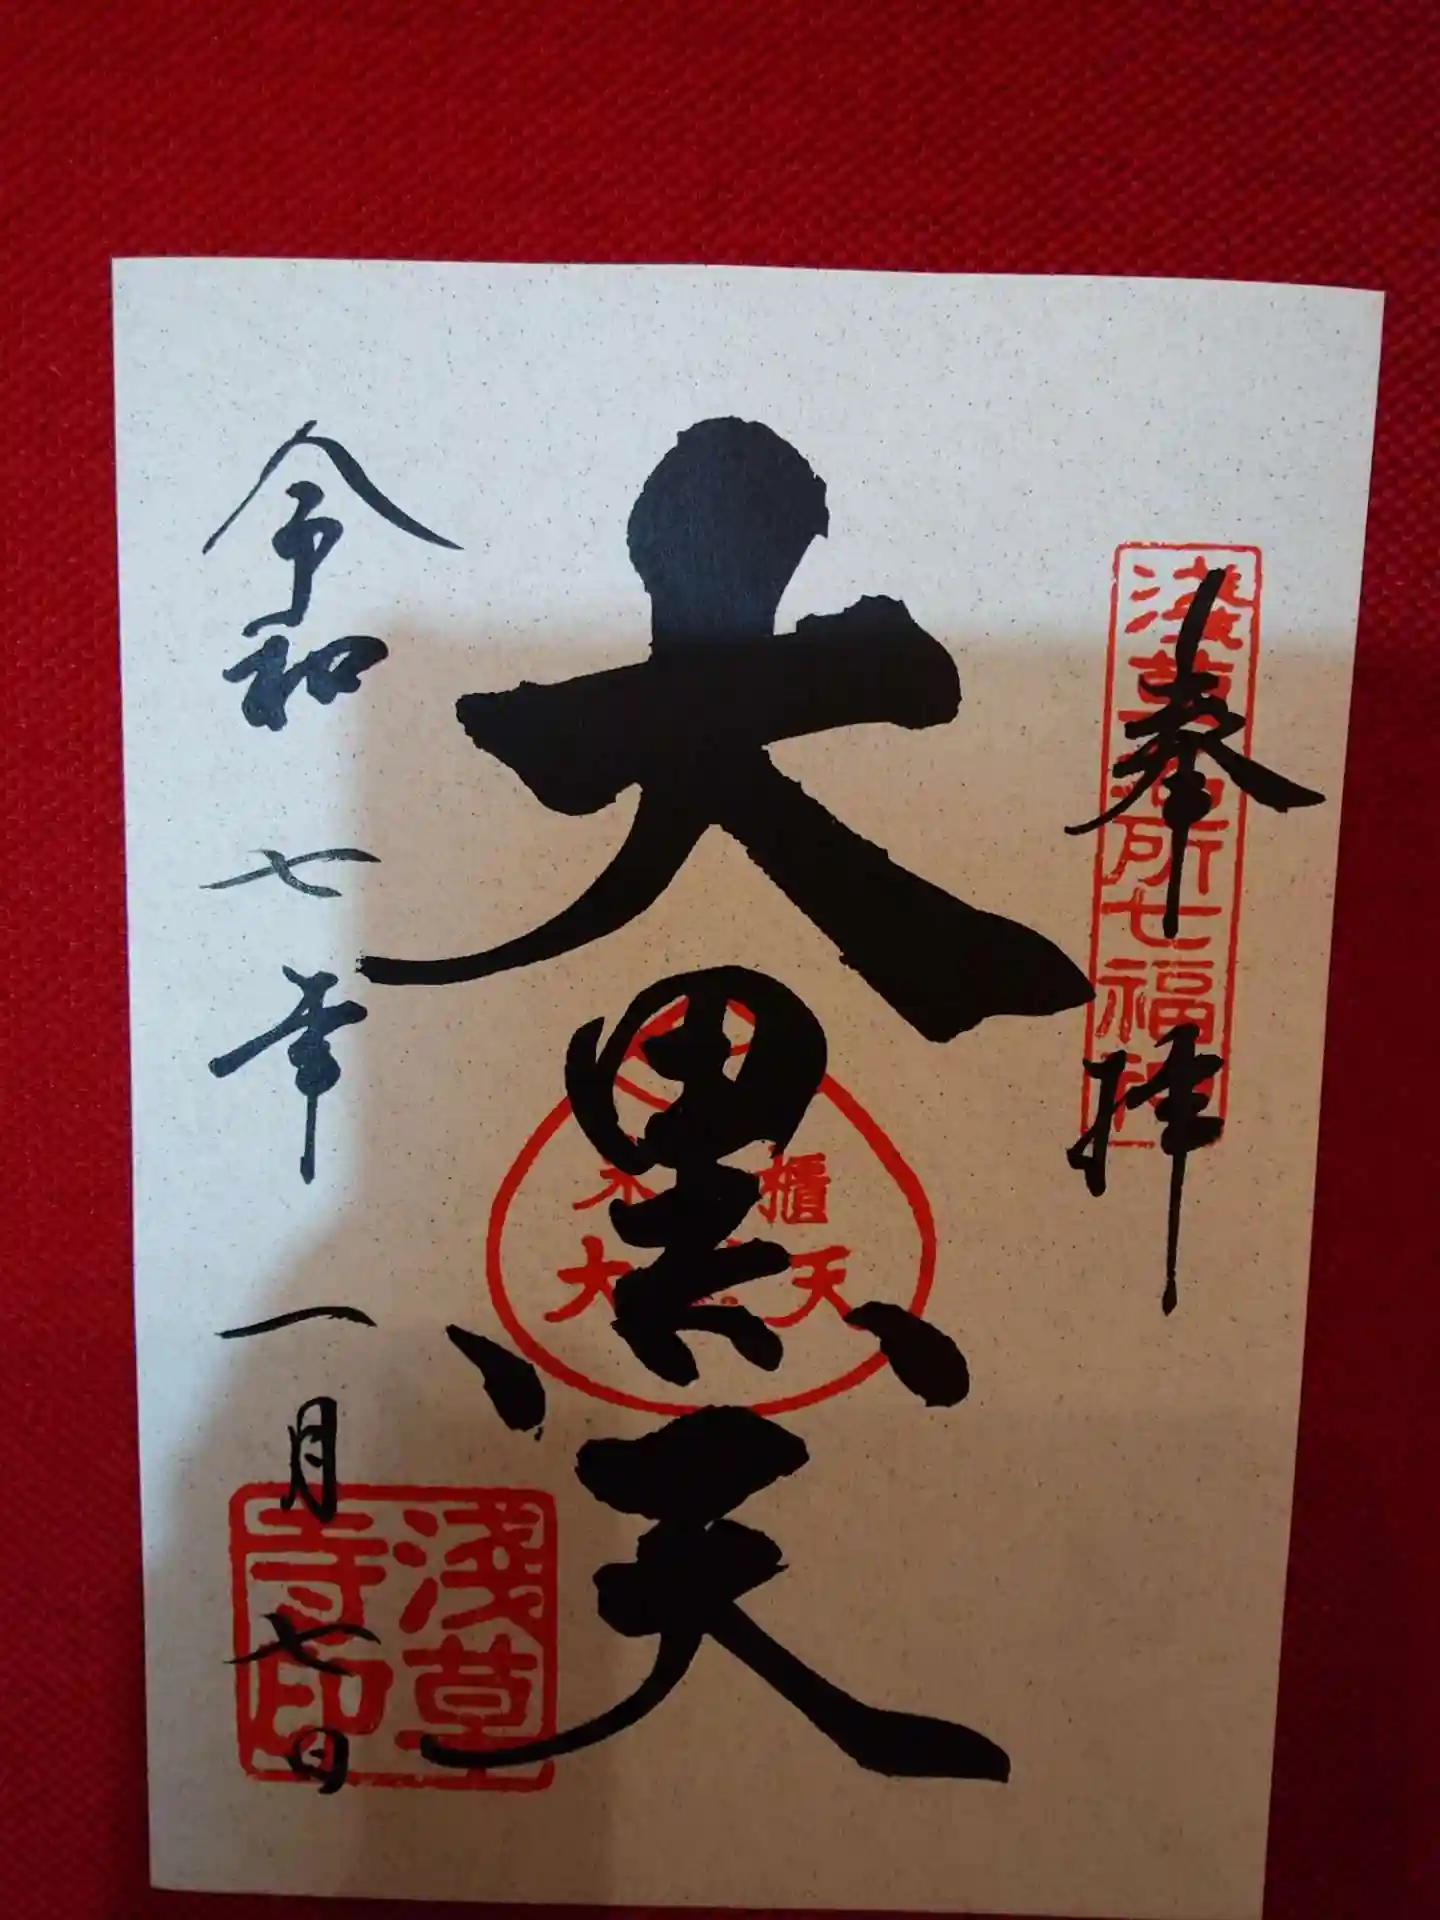 奉拝
淺草名所七福神
大黒天
米櫃
大黒天
令和七年一月七日
淺草
寺印